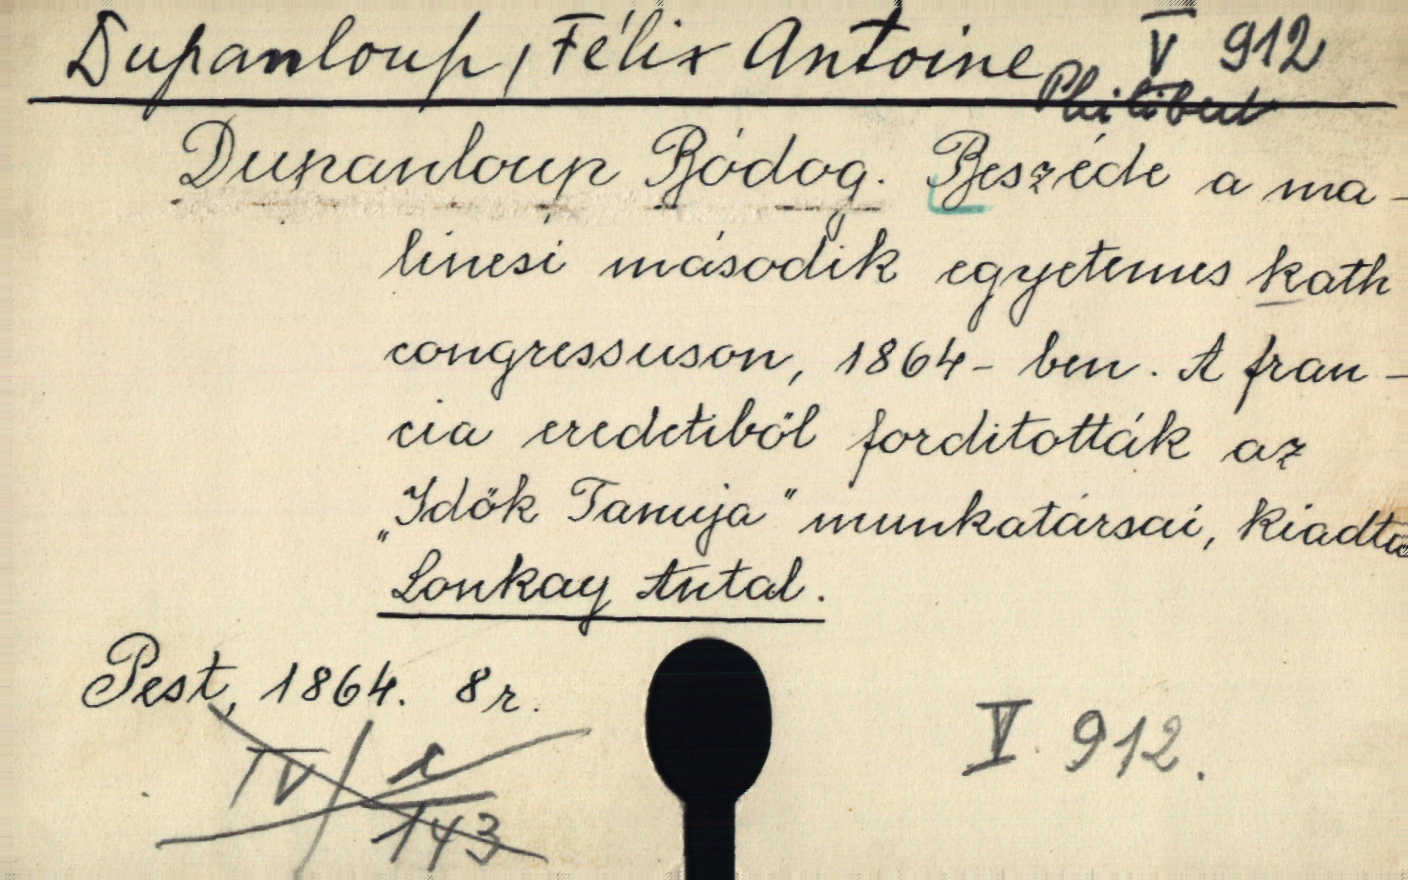 Dupanloup, Félix Antoine V 912
Philibert
Dupanloup Bódog. Beszéde a ma-
linesi második egyetemes kath
congressuson, 1864-ben. A fran-
cia eredetiből forditották az
„Idők Tanuja" munkatársai, kiadta
Lonkay Antal.
Pest, 1864. 8r.
IV / c
143
V 912.